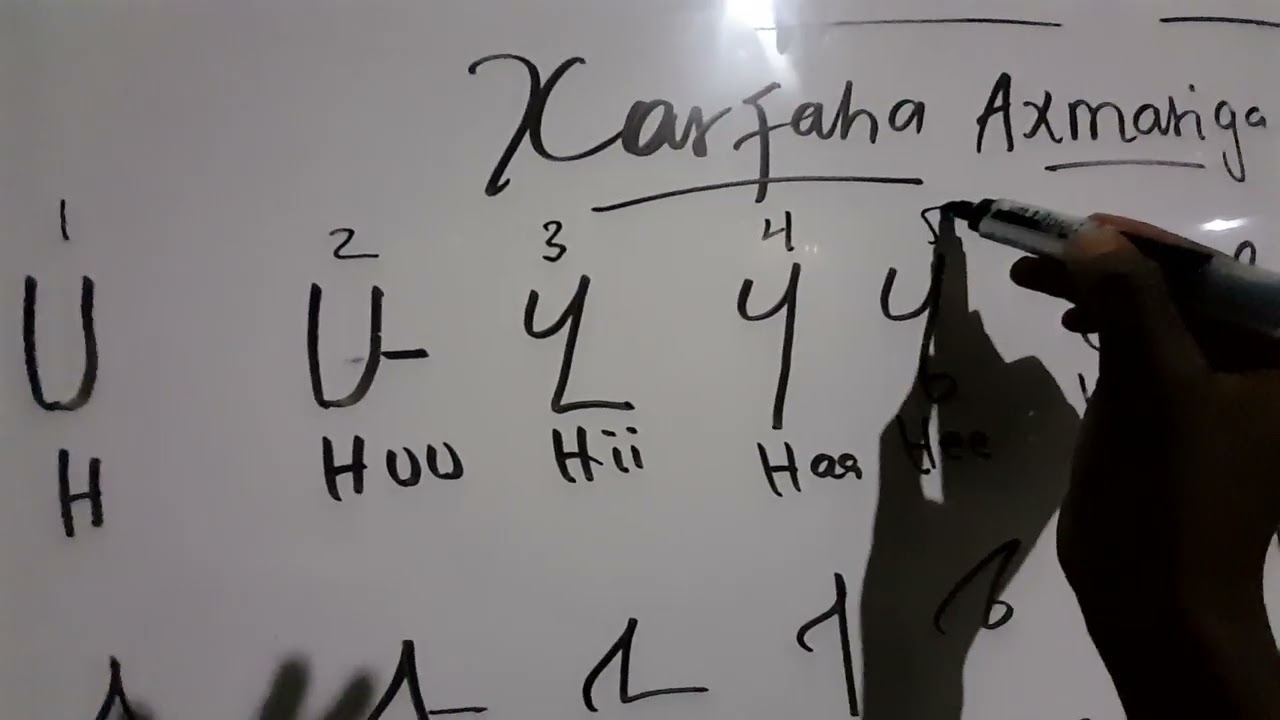 Xarfaha Axmariga
1 2 3 4 5
ሀ ሁ ሂ ሃ ሄ
H HUU Hii Haa Hee
ለ ሉ ሊ ላ ሌ